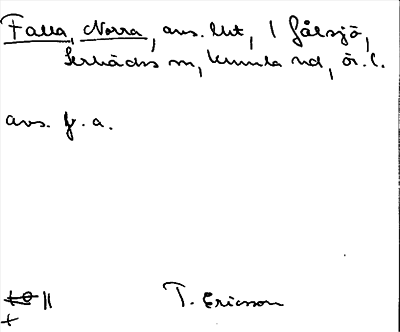 Falla, Norra, avs. lht, 1 Gålsjö,
Lerbäcks sn, Kumla hd, Ör. l.
avs. fr. a.
T. Ericsson